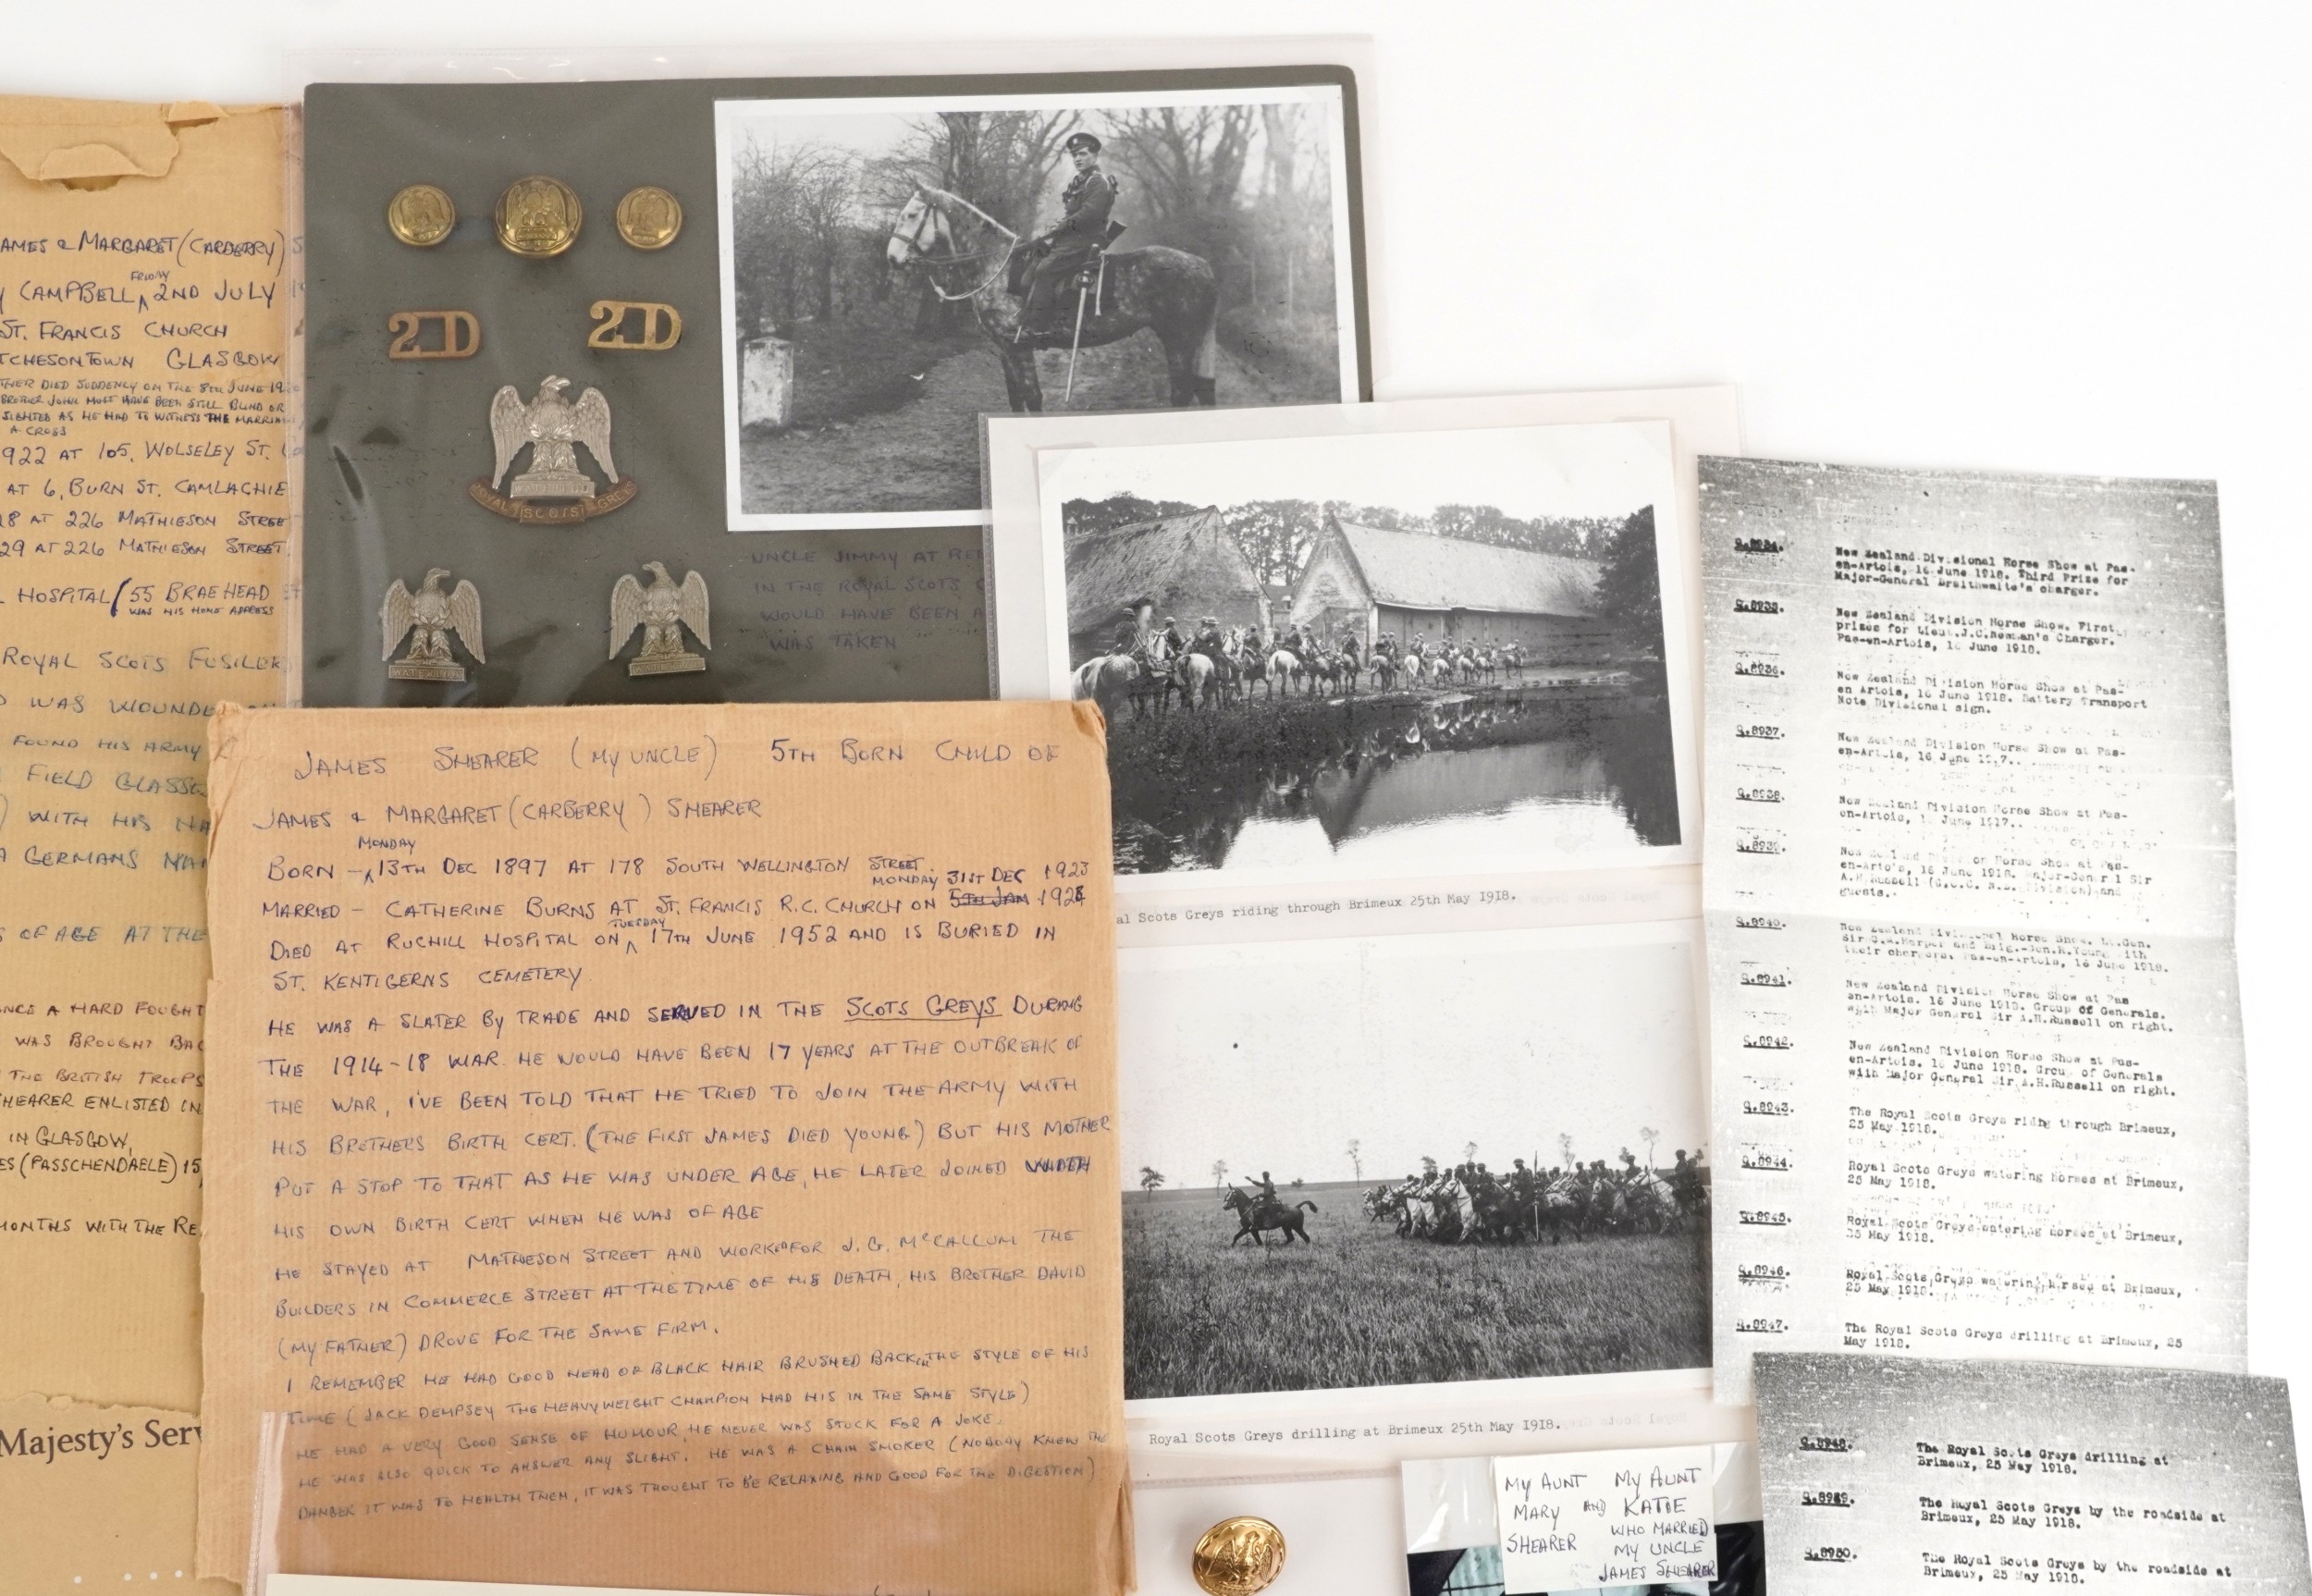 AMES & MARGARET (CARBERRY) S
FRIDAY
Y CAMPBELL 2ND JULY 19
ST. FRANCIS CHURCH
TCHESONTOWN GLASGOW
THER DIED SUDDENLY ON THE 8TH JUNE 19
BROTHER JOHN MUST HAVE BEEN STILL BLIND OR
SIGHTED AS HE HAD TO WITNESS THE MARRIA
A CROSS
922 AT 105, WOLSELEY ST.
AT 6, BURN ST. CAMLACHIE
28 AT 226 MATHIESON STREE
29 AT 226 MATHIESON STREET
L HOSPITAL/55 BRAEHEAD ST
WAS HIS HOME ADDRESS
ROYAL SCOTS FUSILER
D WAS WOUNDE
FOUND HIS ARMY
FIELD GLASSE
) WITH HIS NA
A GERMANS NA
S OF AGE AT THE
NCE A HARD FOUGHT
WAS BROUGHT BAC
THE BRITISH TROOPS
HEARER ENLISTED IN
IN GLASGOW,
ES (PASSCHENDAELE) 15
MONTHS WITH THE RE
Majesty's Serv
2 D
2 D
WATERLOO
ROYAL SCOTS GREYS
WATERLOO
WATERLOO
UNCLE JIMMY AT RE
IN THE ROYAL SCOTS G
WOULD HAVE BEEN A
WAS TAKEN
JAMES SHEARER (MY UNCLE) 5TH BORN CHILD OF
JAMES & MARGARET (CARBERRY) SHEARER
MONDAY
BORN - 13TH DEC 1897 AT 178 SOUTH WELLINGTON STREET.
MONDAY 31ST DEC 1923
MARRIED - CATHERINE BURNS AT ST. FRANCIS R.C. CHURCH ON 5TH JAN 1924
TUESDAY
DIED AT RUCHILL HOSPITAL ON 17TH JUNE 1952 AND IS BURIED IN
ST. KENTIGERNS CEMETERY.
HE WAS A SLATER BY TRADE AND SERVED IN THE SCOTS GREYS DURING
THE 1914-18 WAR. HE WOULD HAVE BEEN 17 YEARS AT THE OUTBREAK OF
THE WAR, I'VE BEEN TOLD THAT HE TRIED TO JOIN THE ARMY WITH
HIS BROTHERS BIRTH CERT. (THE FIRST JAMES DIED YOUNG) BUT HIS MOTHER
PUT A STOP TO THAT AS HE WAS UNDER AGE, HE LATER JOINED WITH
HIS OWN BIRTH CERT WHEN HE WAS OF AGE
HE STAYED AT MATHIESON STREET AND WORKED FOR J. G. McCALLUM THE
BUILDERS IN COMMERCE STREET AT THE TIME OF HIS DEATH, HIS BROTHER DAVID
(MY FATHER) DROVE FOR THE SAME FIRM.
I REMEMBER HE HAD GOOD HEAD OF BLACK HAIR BRUSHED BACK IN THE STYLE OF HIS
TIME (JACK DEMPSEY THE HEAVYWEIGHT CHAMPION HAD HIS IN THE SAME STYLE)
HE HAD A VERY GOOD SENSE OF HUMOUR, HE NEVER WAS STUCK FOR A JOKE.
HE WAS ALSO QUICK TO ANSWER ANY SLIGHT. HE WAS A CHAIN SMOKER (NOBODY KNEW THE
DANGER IT WAS TO HEALTH THEN, IT WAS THOUGHT TO BE RELAXING AND GOOD FOR THE DIGESTION)
al Scots Greys riding through Brimeux 25th May 1918.
Royal Scots Greys drilling at Brimeux 25th May 1918.
MY AUNT MY AUNT
MARY AND KATIE
SHEARER WHO MARRIED
MY UNCLE
JAMES SHEARER
Q.8934. New Zealand Divisional Horse Show at Pas-
en-Artois, 16 June 1918. Third Prize for
Major-General Braithwaite's charger.
Q.8935. New Zealand Division Horse Show. First
prizes for Lieut.J.C.Newman's Charger.
Pas-en-Artois, 16 June 1918.
Q.8936. New Zealand Division Horse Show at Pas-
en Artois, 16 June 1918. Battery Transport
Note Divisional sign.
Q.8937. New Zealand Division Horse Show at Pas-
en-Artois, 16 June 1917.
Q.8938. New Zealand Division Horse Show at Pas-
en-Artois, 16 June 1917.
Q.8939. New Zealand Division Horse Show at Pas-
en-Artois, 16 June 1918. Major-General Sir
A.H.Russell (G.O.C. N.Z. Division) and
guests.
Q.8940. New Zealand Divisional Horse Show. Lt.Gen.
Sir G.M.Harper and Brig.-Gen.R.Young with
their chargers. Pas-en-Artois, 16 June 1918.
Q.8941. New Zealand Division Horse Show at Pas
en-Artois. 16 June 1918. Group of Generals.
with Major General Sir A.H.Russell on right.
Q.8942. New Zealand Division Horse Show at Pas-
en-Artois. 16 June 1918. Group of Generals
with Major General Sir A.H.Russell on right.
Q.8943. The Royal Scots Greys riding through Brimeux,
25 May 1918.
Q.8944. Royal Scots Greys watering horses at Brimeux,
25 May 1918.
Q.8945. Royal Scots Greys watering horses at Brimeux,
25 May 1918.
Q.8946. Royal Scots Greys watering horses at Brimeux,
25 May 1918.
Q.8947. The Royal Scots Greys drilling at Brimeux, 25
May 1918.
Q.8948. The Royal Scots Greys drilling at
Brimeux, 25 May 1918.
Q.8949. The Royal Scots Greys by the roadside at
Brimeux, 25 May 1918.
Q.8950. The Royal Scots Greys by the roadside at
Brimeux, 25 May 1918.